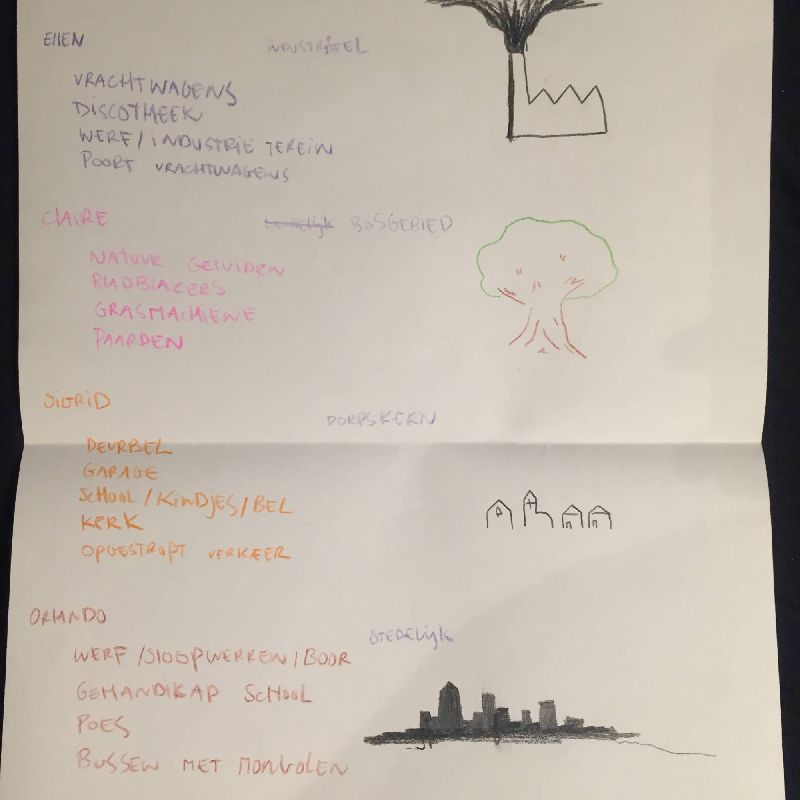 EllEN
INDUSTRIEEL
VRACHTWAGENS
DISCOTHEEK
WERF/INDUSTRIE TEREIN
POORT VRACHTWAGENS
CLAIRE
BOSGEBIED
NATUUR GELUIDEN
BLADBLAZERS
GRASMACHIENE
PAARDEN
SIGRID
DORPSKERN
DEURBEL
GARAGE
SCHOOL/KINDJES/BEL
KERK
OPGESTROPT VERKEER
ORLANDO
STEDELIJK
WERF/SLOOPWERKEN/BOOR
GEHANDIKAP SCHOOL
POES
BUSSEN MET MONGOLEN